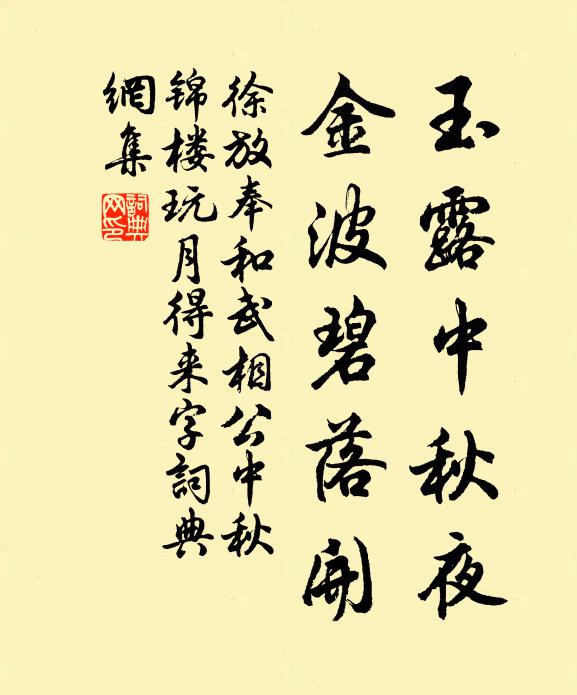 玉露中秋夜
金波碧落開
徐放奉和武相公中秋
锦楼玩月得来字詞典
網集
詞典
网印